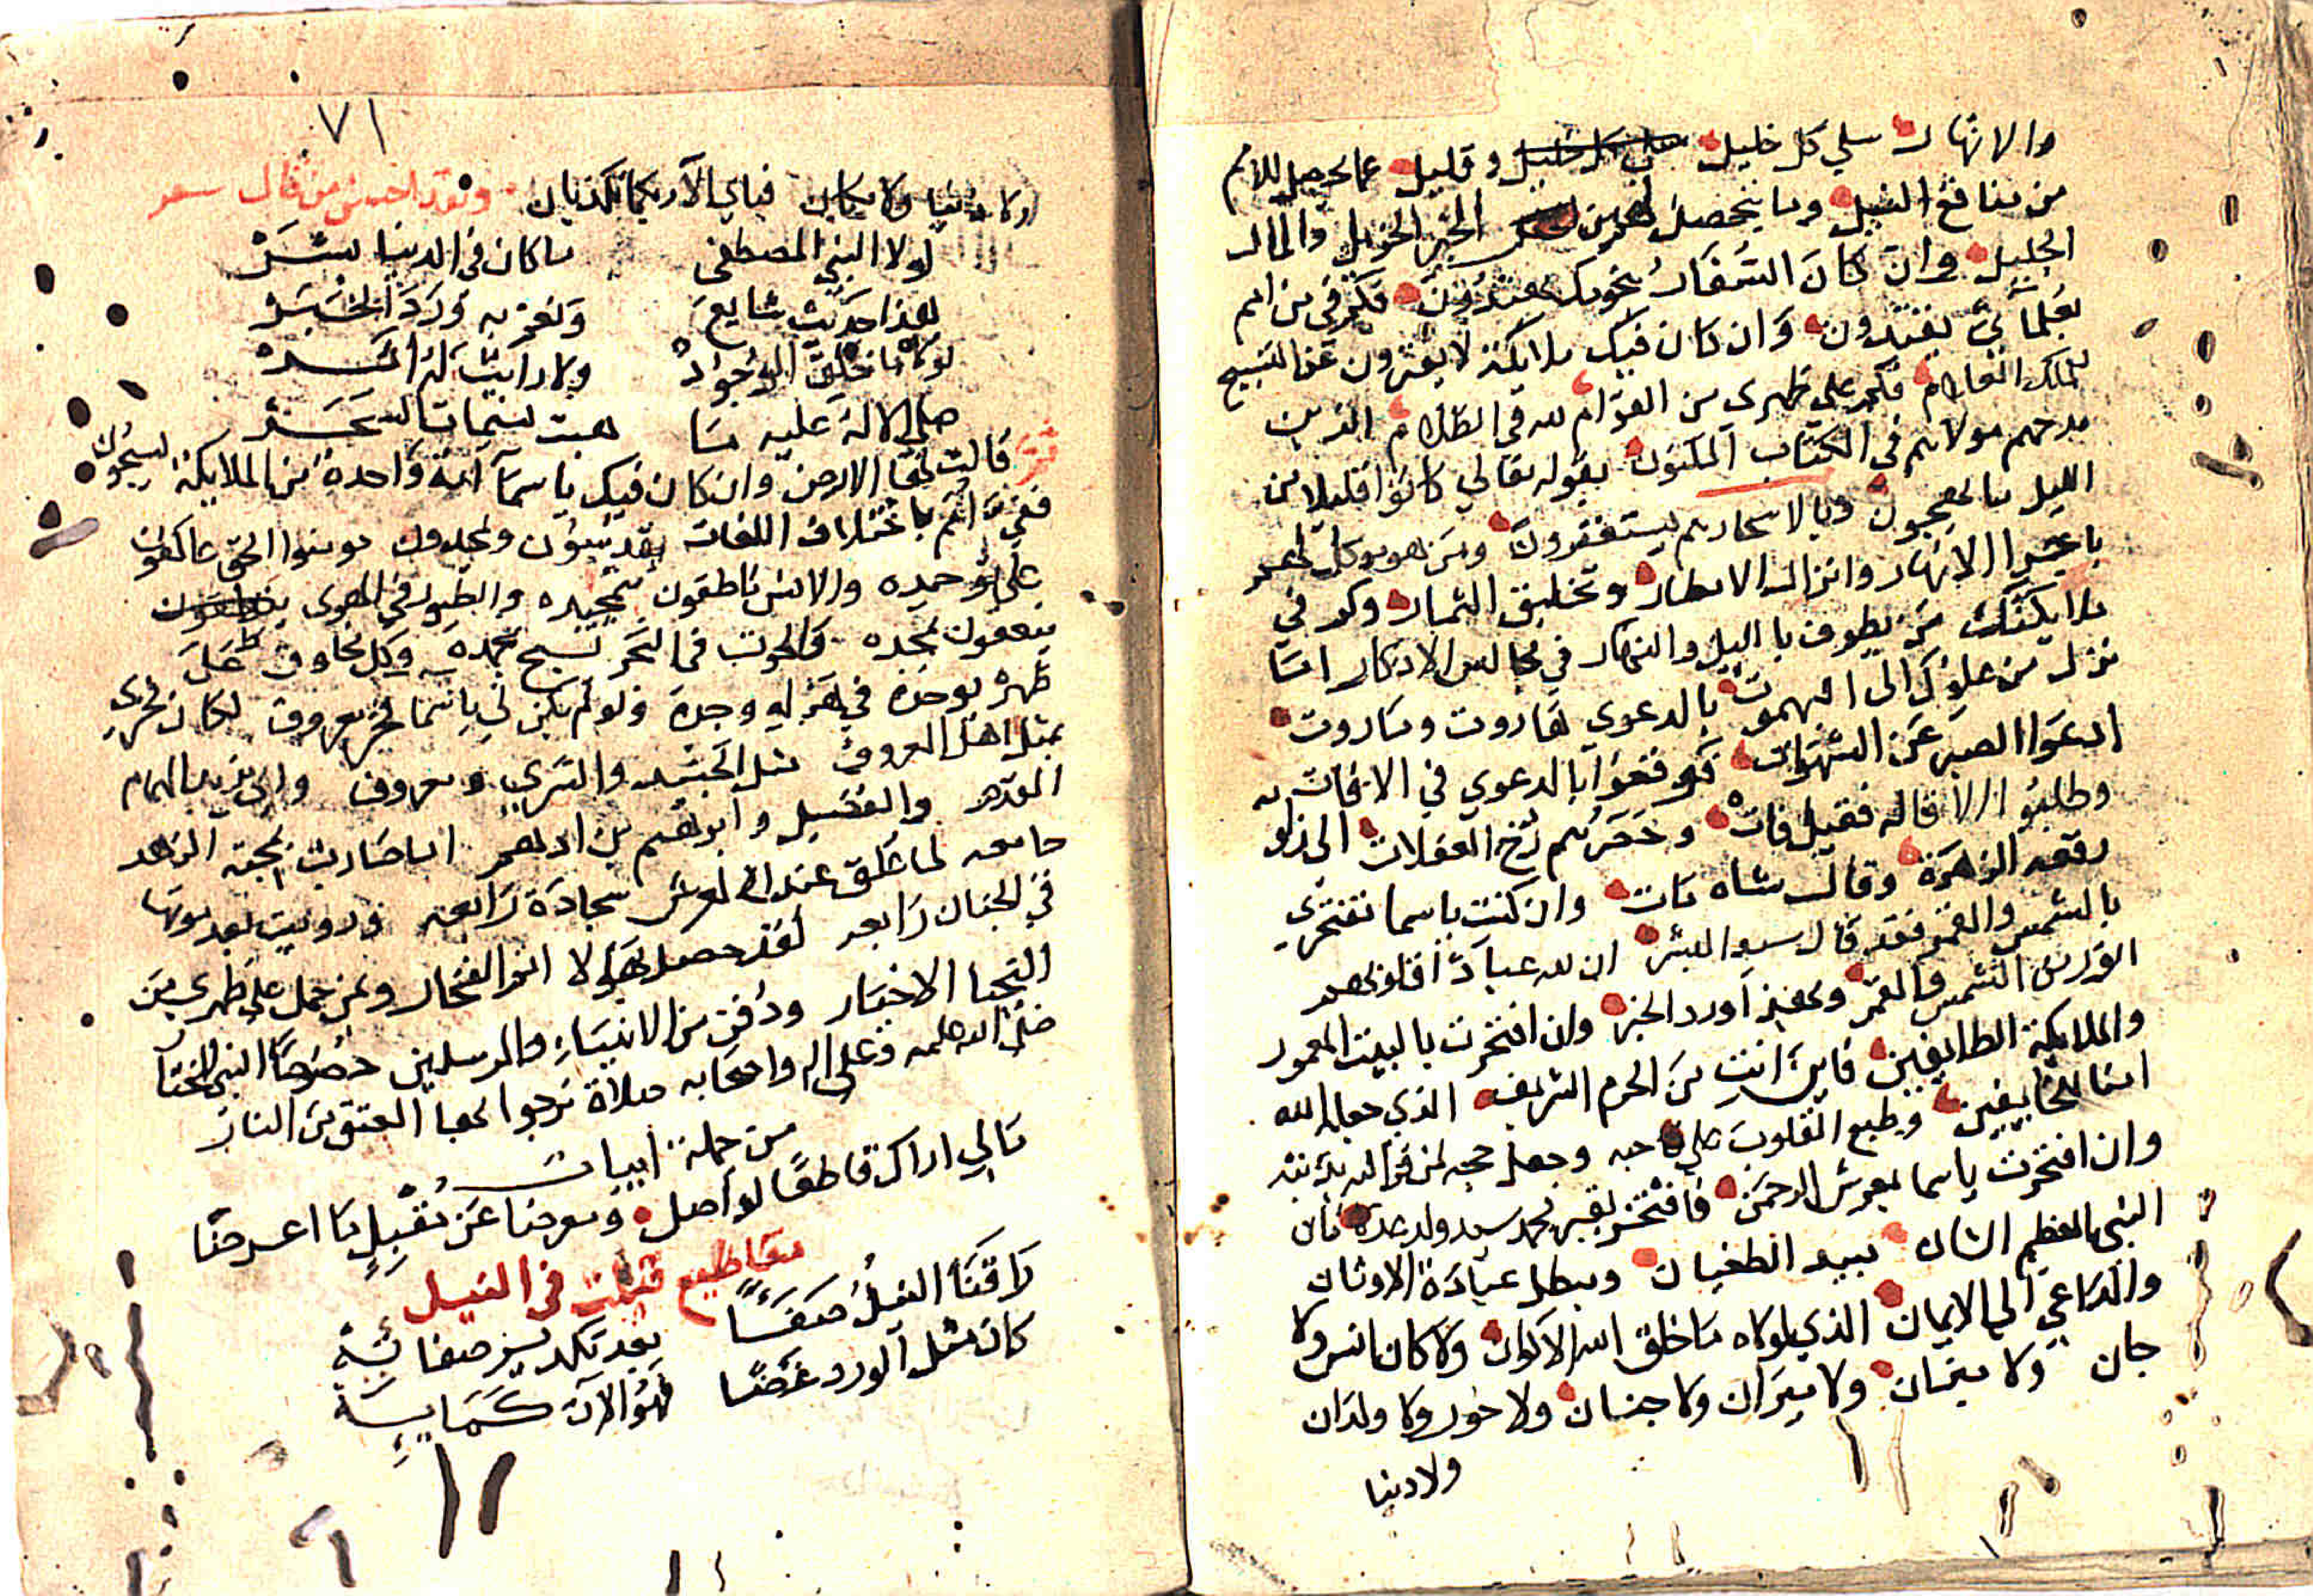 والانهار سلي كل خليل وقليل عما يحصل للامم
من منافع النيل وما يتحصل لهم من الخير الجزيل والمال
الجليل وان كان السفار بنجومك يهتدون فكم في من امم
بعلمائي يقتدون وان كان فيك ملايكة لا يفترون عن التسبيح
للملك العلام فكم علي ظهري من القوام لله في الظلام الذين
مدحهم مولاهم في الكتاب المكنون بقوله تعالي كانوا قليلا من
الليل ما يهجعون وبالاسحار هم يستغفرون ومن هو موكل لهم
باجرا الانهار وانزال الامطار وتخليق الثمار وكم في
ملايكتك من يطوف بالليل والنهار في مجالس الاذكار اما
نزل من علوك الى البهموت بالدعوي هاروت وماروت
ادعوا الصبر عن الشهوات فوقعوا بالدعوي في الافات
وطلبوا الاقاله فقيل فات وحضرهم رخ الغفلات الى
رقعة الزهرة وقال شاه مات وان كنت ياسما تفتخري
بالشمس والقمر فقد قال سيد البشر ان لله عبادا قلوبهم
انور من الشمس والقمر وبهذا ورد الخبر وان افتخرت بالبيت المعمور
والملايكة الطايفين فاين انت من الحرم الشريف الذي جعله الله
امنا للخايفين وطبع القلوب علي حبه وجعل حجه
وان افتخرت ياسما بعرش الرحمن فافتخر بقبر محمد سيد ولد عدنان
النبي العظيم الشان مبيد الطغيان ومبطل عبادة الاوثان
والداعي الي الايمان الذي لولاه ما خلق الله الاكوان ولا كان انس ولا
جان ولا ميزان ولا نيران ولا جنان ولا حور ولا ولدان
ولا دنيا
٧١
ولا دنيا ولا مكان فباي الآء ربكما تكذبان ولقد احسن من قال شعر
لولا النبي المصطفى ما كان في الدنيا بشر
هذا حديث شايع وبعزه ورد الخبر
لولاه ما خلق الوجود ولا رايت له اثر
صلي الاله عليه ما هبت نسمات السحر
قالت لها الارض وان كان فيك ياسما امة واحدة من الملايكة يسبحون
ففي امم باختلاف اللغات يقدسون ويحمدون مومنوا الجن عاكفون
علي توحيده والانس ناطقون بتمجيده والطيور في الهوى
ينعمون بمجده والحوت في البحر يسبح بحمده وكل مخلوق علي
ظهري يوحده في هزله وجده ولو لم يكن لي ياسما فخر معروف لكان فخري
بمثل اهل المعروف مثل الجنيد والسري ومعروف وابي يزيد الهمام
المقدم والفضيل وابرهيم بن ادهم اما صارت بمحبة الزهد
جامعه لما علق عند العرش سجادة رابعه ورويت بعد موتها
في الجنان رابعه لقد حصل بهولا انوا الفخار وبمن حمل علي ظهري من
النجبا الاخيار ودفن من الانبياء والمرسلين خصوصا النبي المختار
صلى الله عليه وعلى اله واصحابه صلاة نرجوا بها العتق من النار
من جملة ابيات
مالي اراك قاطعا لواصل ومعرضا عن مقبل ما اعرضا
مقاطيع قيلت في النيل
راقنا النيل صفا بعد تكدير صفايه
كان مثل الورد غضا فهو الان كمايه